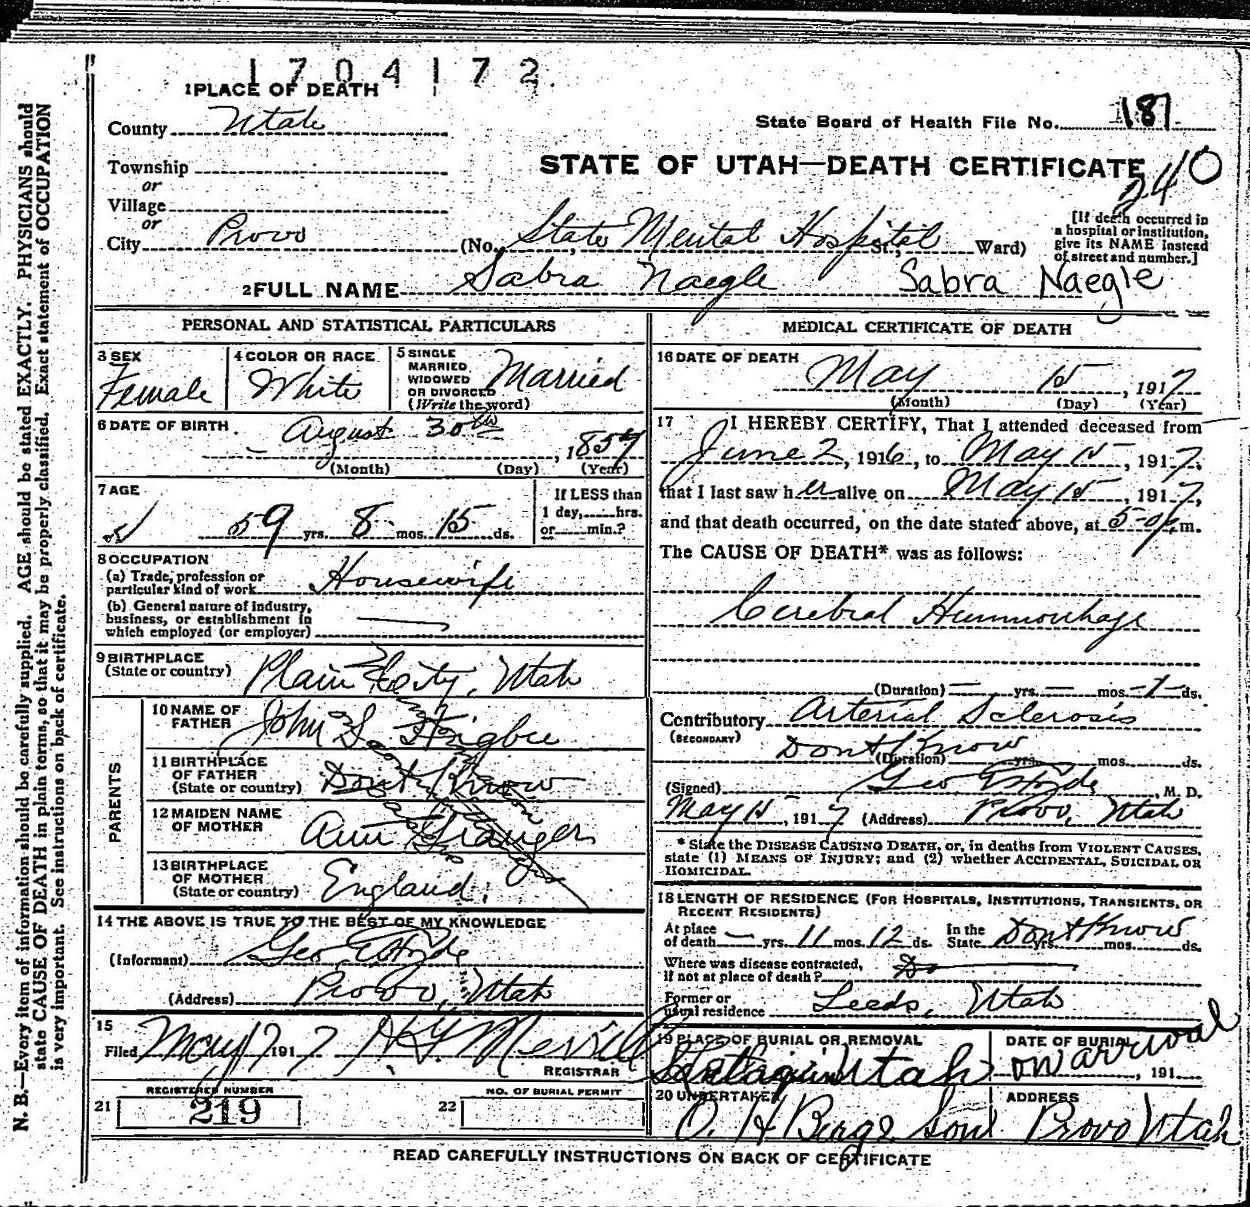 1704172.
1 PLACE OF DEATH
County Utah
State Board of Health File No. 187
Township
STATE OF UTAH—DEATH CERTIFICATE
240
or
Village
or
City Provo (No. State Mental Hospital St., Ward)
[If death occurred in
a hospital or institution,
give its NAME instead
of street and number.]
2 FULL NAME Sabra Naegle Sabra Naegle
PERSONAL AND STATISTICAL PARTICULARS
3 SEX
Female
4 COLOR OR RACE
White
5 SINGLE
MARRIED
WIDOWED
OR DIVORCED
(Write the word)
Married
6 DATE OF BIRTH
August 30th, 1857
(Month) (Day) (Year)
7 AGE
59 yrs. 8 mos. 15 ds.
If LESS than
1 day, hrs.
or min.?
8 OCCUPATION
(a) Trade, profession or
particular kind of work Housewife
(b) General nature of industry,
business, or establishment in
which employed (or employer)
9 BIRTHPLACE
(State or country) Plain City, Utah
PARENTS
10 NAME OF
FATHER John S. Higbee
11 BIRTHPLACE
OF FATHER
(State or country) Dont Know
12 MAIDEN NAME
OF MOTHER Ann Granger
13 BIRTHPLACE
OF MOTHER
(State or country) England.
14 THE ABOVE IS TRUE TO THE BEST OF MY KNOWLEDGE
(Informant) Geo E Hyde
(Address) Provo, Utah
15
Filed May 17 1917 H. G. Merrill
REGISTRAR
REGISTERED NUMBER
21 219
NO. OF BURIAL PERMIT
22
MEDICAL CERTIFICATE OF DEATH
16 DATE OF DEATH
May 15, 1917
(Month) (Day) (Year)
17 I HEREBY CERTIFY, That I attended deceased from
June 2, 1916, to May 15, 1917,
that I last saw her alive on May 15, 1917,
and that death occurred, on the date stated above, at 5-0 p.m.
The CAUSE OF DEATH* was as follows:
Cerebral Hemmorrhage
(Duration) — yrs. — mos. -1- ds.
Contributory Arterial Sclerosis
(SECONDARY)
Dont Know
(Duration) yrs. mos. ds.
(Signed) Geo E Hyde, M. D.
May 15, 1917 (Address) Provo, Utah
* State the DISEASE CAUSING DEATH, or, in deaths from VIOLENT CAUSES,
state (1) MEANS OF INJURY; and (2) whether ACCIDENTAL, SUICIDAL OR
HOMICIDAL.
18 LENGTH OF RESIDENCE (FOR HOSPITALS, INSTITUTIONS, TRANSIENTS, OR
RECENT RESIDENTS)
At place
of death — yrs. 11 mos. 12 ds.
In the
State Dont Know yrs. mos. ds.
Where was disease contracted,
if not at place of death? Do
Former or
usual residence Leeds, Utah
19 PLACE OF BURIAL OR REMOVAL
Utah
DATE OF BURIAL
on arrival, 191
20 UNDERTAKER
O. H Berg & Sons
ADDRESS
Provo Utah
READ CAREFULLY INSTRUCTIONS ON BACK OF CERTIFICATE
N. B.—Every item of information should be carefully supplied. AGE should be stated EXACTLY. PHYSICIANS should
state CAUSE OF DEATH in plain terms, so that it may be properly classified. Exact statement of OCCUPATION
is very important. See instructions on back of certificate.